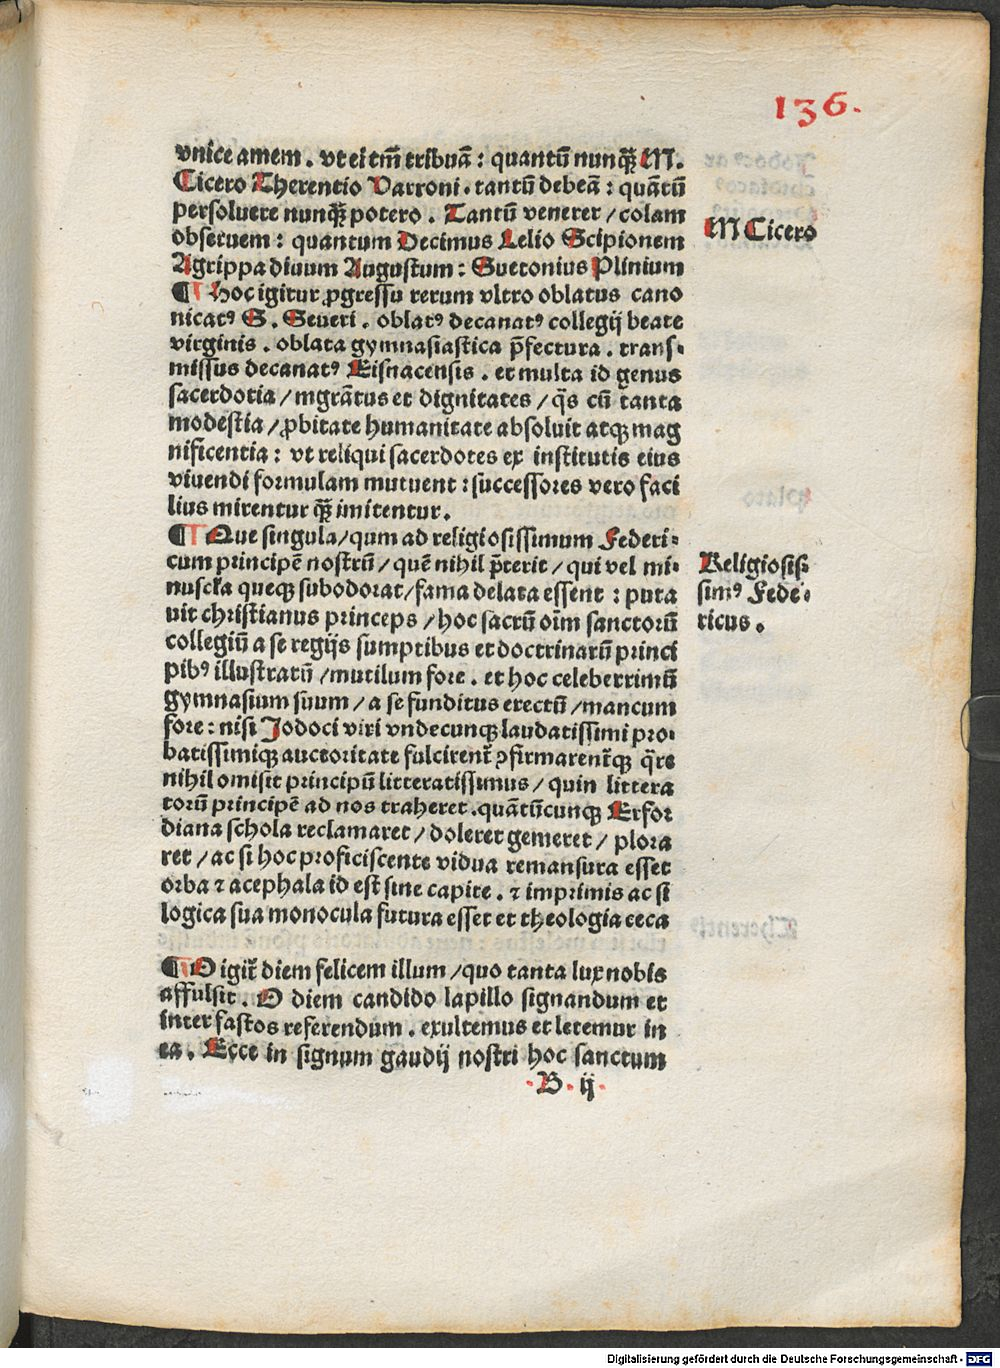 136.
vnice amem . vt ei tm̄ tribuā : quantū nunqȝ̄ M.
Cicero Therentio Varroni . tantū debeā : quātū
persoluere nunqȝ̄ potero . Tantū venerer / colam
obseruem : quantum Decimus Lelio Scipionem
Agrippa diuum Augustum : Suetonius Plinium
M Cicero
¶ Hoc igitur ꝓgressu rerum vltro oblatus cano
nicatꝰ S . Seueri . oblatꝰ decanatꝰ collegij beate
virginis . oblata gymnasiastica p̄fectura . trans⸗
missus decanatꝰ Eisnacensis . et multa id genus
sacerdotia / mgrātus et dignitates / q̄s cū tanta
modestia / ꝓbitate humanitate absoluit atqȝ mag
nificentia : vt reliqui sacerdotes ex institutis eius
viuendi formulam mutuent : successores vero faci
lius mirentur qȝ̄ imitentur .
¶ Que singula / qum ad religiosissimum Federi⸗
cum principē nostrū / quē nihil p̄terit / qui vel mi⸗
nuscl̄a queqȝ subodorat / fama delata essent : puta
uit christianus princeps / hoc sacrū oīm sanctorū
collegiū a se regijs sumptibus et doctrinarū princi
pibꝰ illustratū / mutilum fore . et hoc celeberrimū
gymnasium suum / a se funditus erectū / mancum
fore : nisi Jodoci viri vndecunqȝ laudatissimi pro⸗
batissimiqȝ auctoritate fulcirent᷑ ꝯfirmarent᷑qȝ q̄re
nihil omisit principū litteratissimus / quin littera
torū principē ad nos traheret . quātūcunqȝ Erfor
diana schola reclamaret / doleret gemeret / plora
ret / ac si hoc proficiscente vidua remansura esset
orba ⁊ acephala id est sine capite . ⁊ imprimis ac si
logica sua monocula futura esset et theologia ceca
Religiosis⸗
simꝰ Fede⸗
ricus .
¶ O igit᷑ diem felicem illum / quo tanta lux nobis
affulsit . O diem candido lapillo signandum et
inter fastos referendum . exultemus et letemur in
ea . Ecce in signum gaudij nostri hoc sanctum
B ij
Digitalisierung gefördert durch die Deutsche Forschungsgemeinschaft - DFG